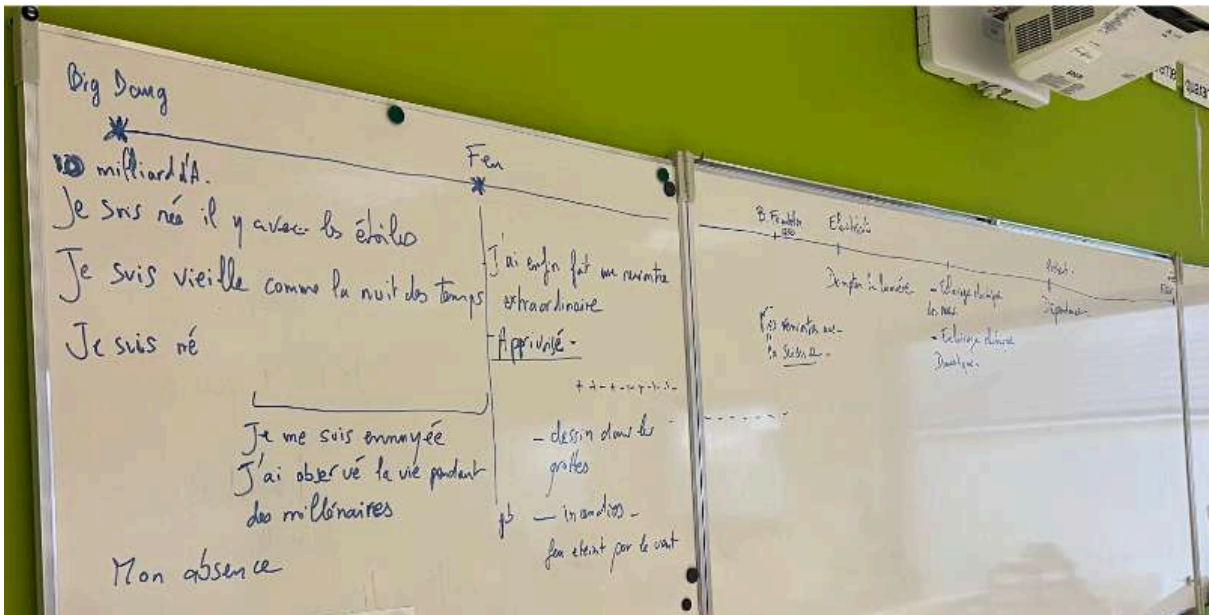 Big Dang
milliard d'A.
Je suis née il y avec les étoiles
Je suis vieille comme la nuit des temps
Je suis né
Je me suis ennuyée
J'ai observé la vie pendant
des millénaires
Mon absence
Feu
J'ai enfin fait une rencontre
extraordinaire
Apprivoisé -
- dessin dans les
grottes
pb — incendies -
feu éteint par le vent
Electricité
Dompter la lumière
- Eclairage électrique
des rues
- Eclairage
Domestique.
Dépendance